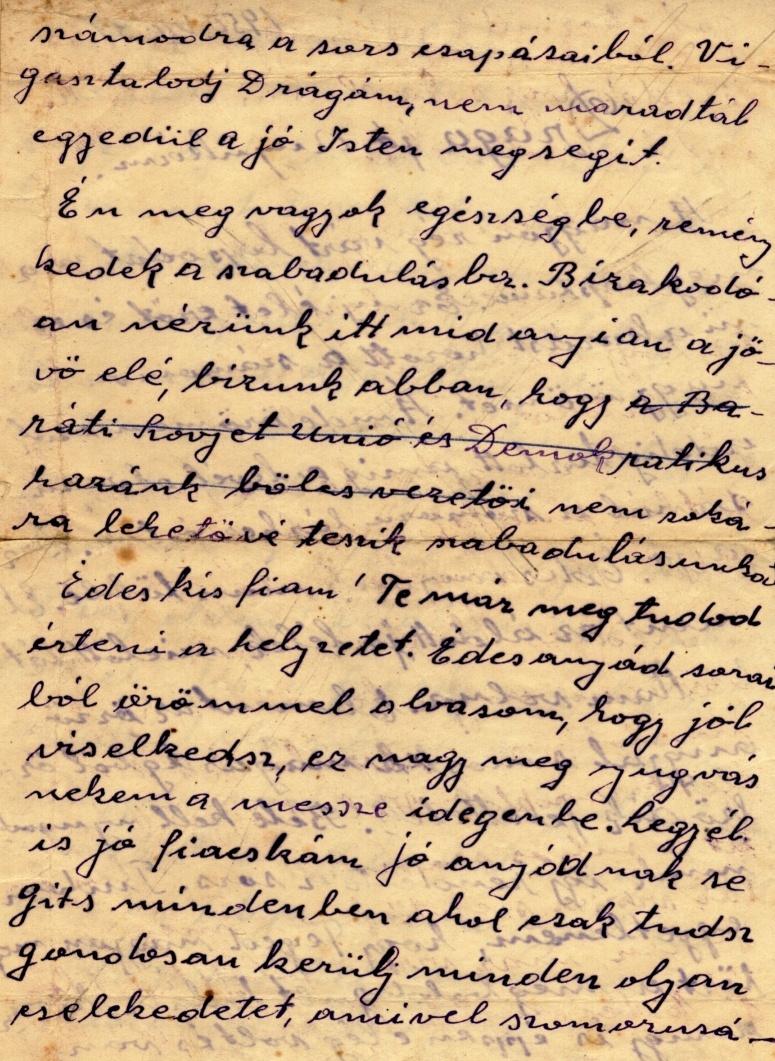 számodra a sors csapásaiból. Vi-
gasztalodj Drágám, nem maradtál
egyedül a jó Isten megsegit.
Én meg vagyok egészségbe, remény
kedek a szabadulásba. Bizakodó-
an nézünk itt mid anyian a jö-
vö elé, bizunk abban, hogy a Ba-
ráti Szovjet Unió és Demokratikus
hazánk bölcs vezetöi nem soká-
ra lehetövé teszik szabadulásunkat
Édes kis fiam! Te már meg tudod
érteni a helyzetet. Édesanyád sorai
ból örömmel olvasom, hogy jól
viselkedsz, ez nagy meg nyugvás
nekem a messze idegenbe. Legyél
is jó fiacskám jó anyódnak se
gits mindenben ahol csak tudsz
gondosan kerülj minden olyan
cselekedetet, amivel szomorusá-